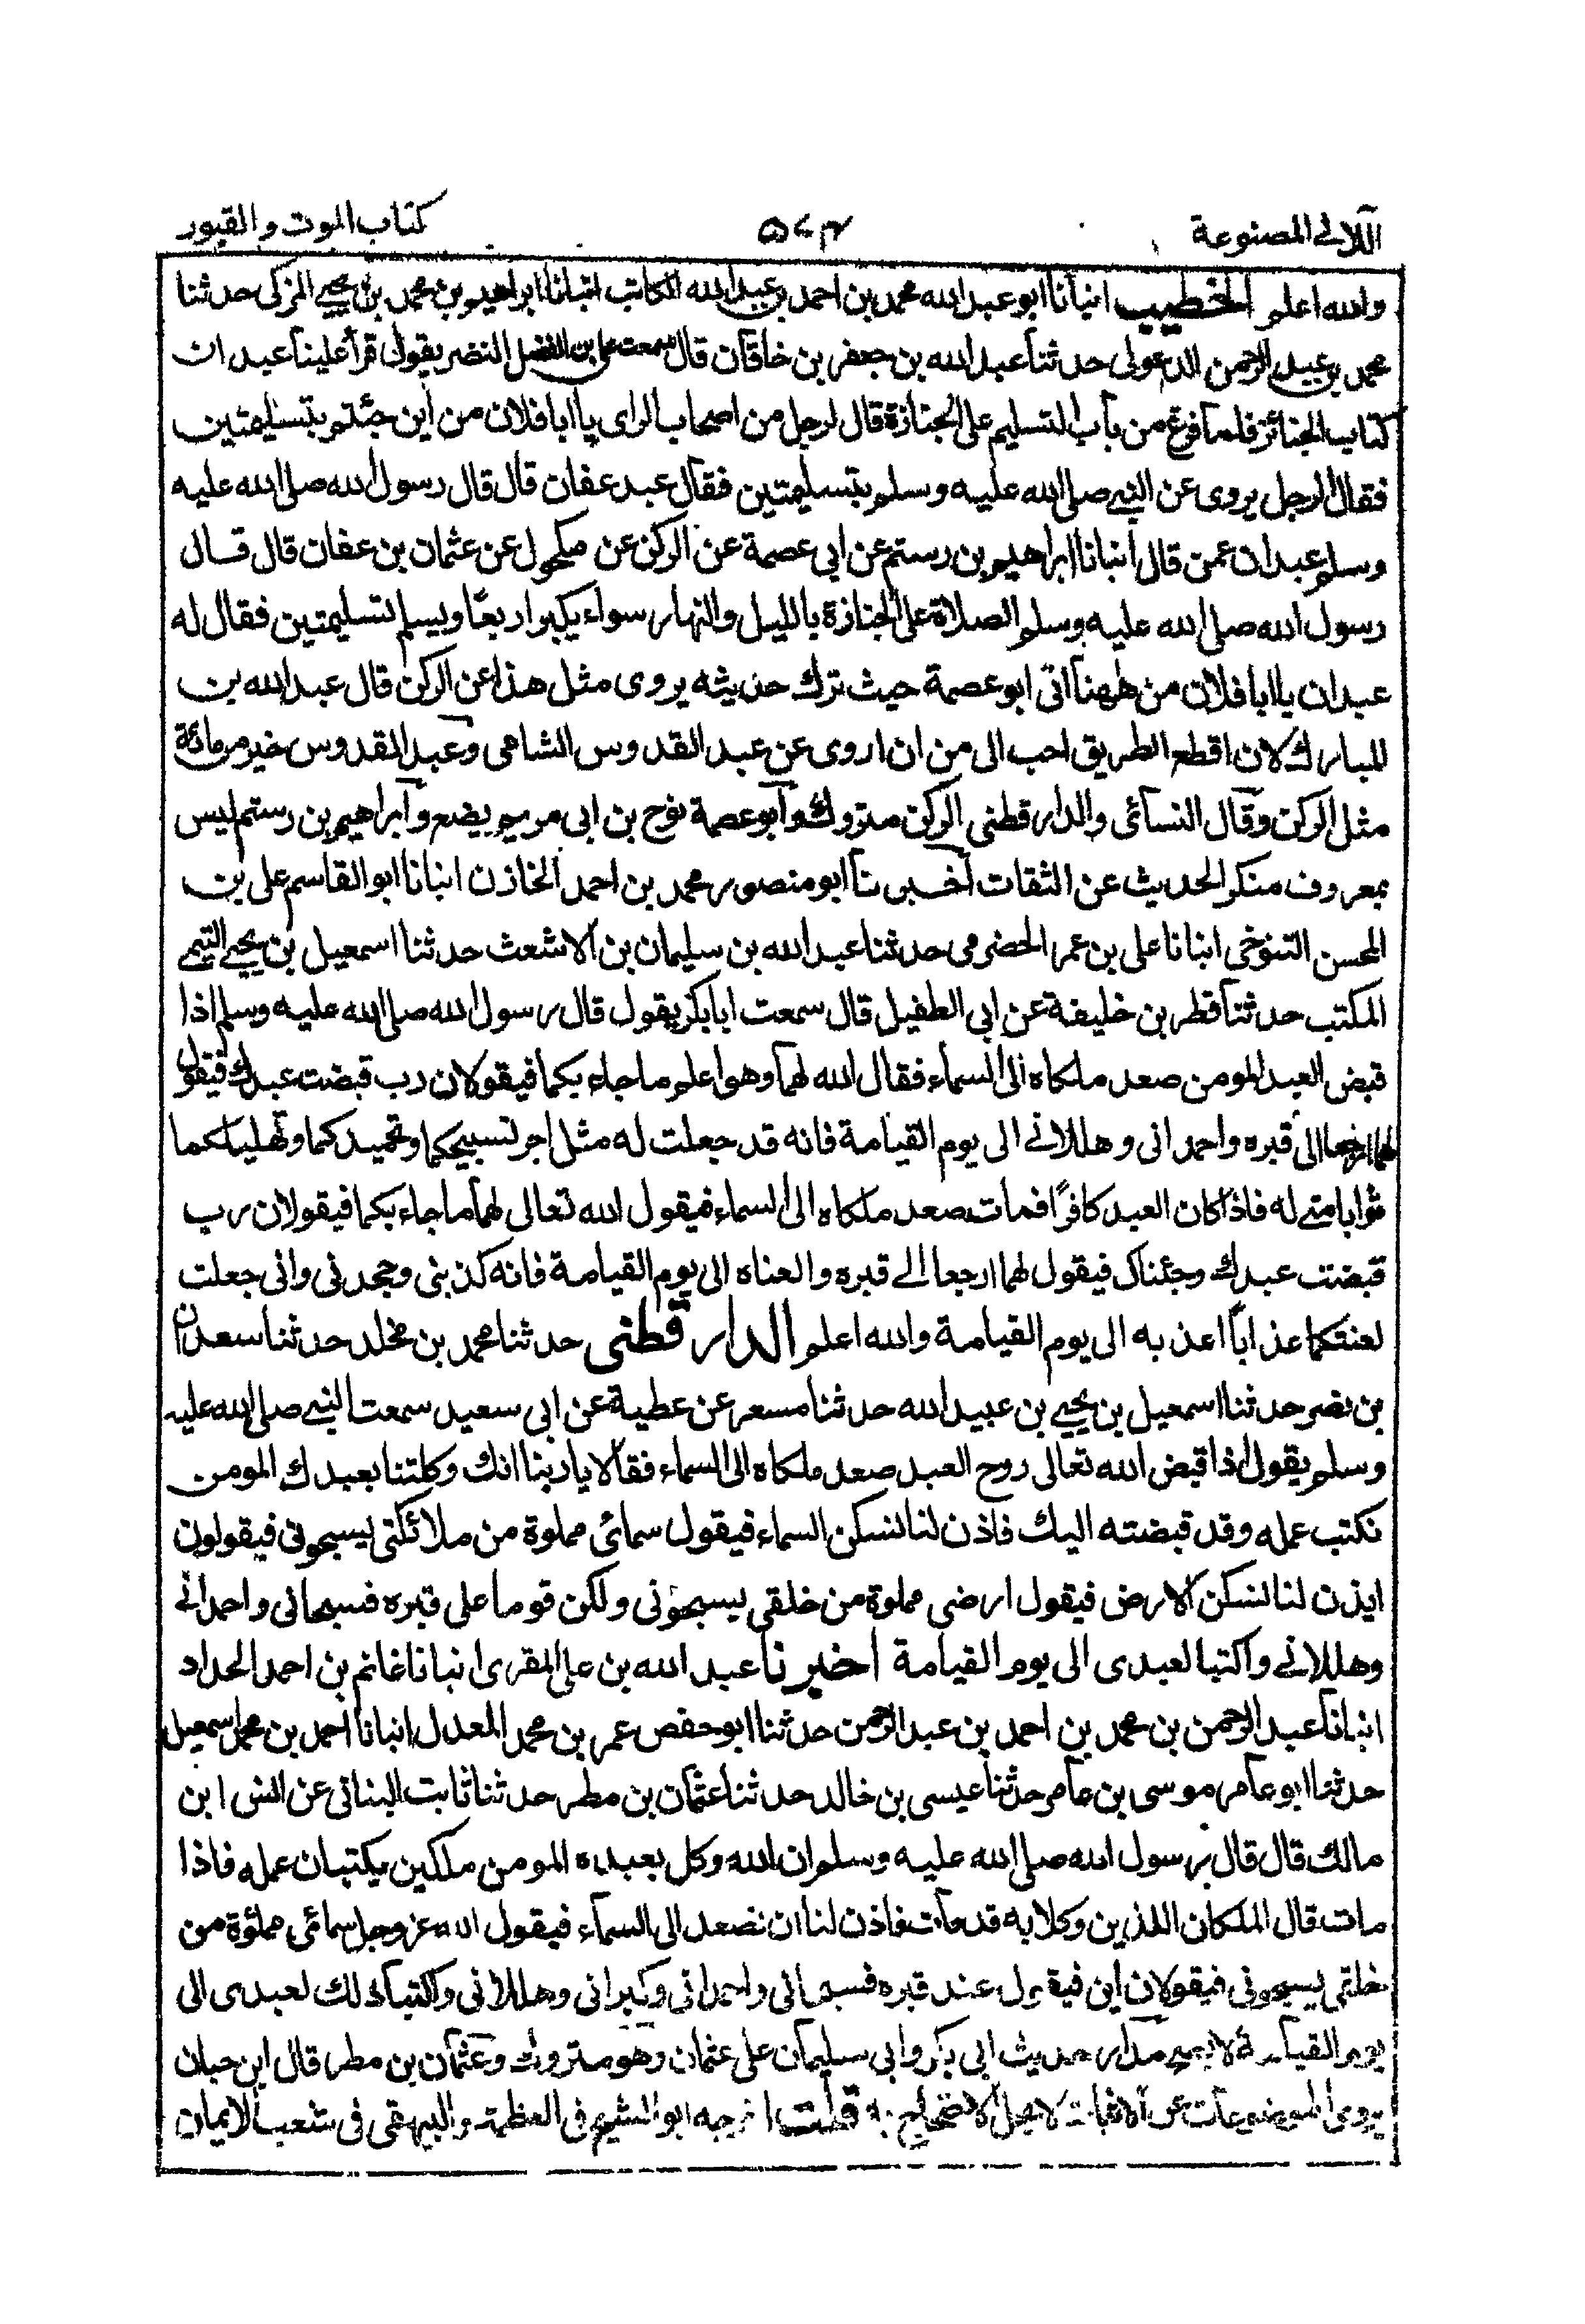 اللالى المصنوعة
۵۷۴
كتاب الموت والقبور
والله اعلم الخطيب انبأنا ابو عبد الله محمد بن احمد بن عبد الله الكاتب انبانا ابراهيم بن محمد بن يحيى المزكى حدثنا
محمد بن عبد الرحمن الدغولى حدثنا عبد الله بن جعفر بن خاقان قال سمعت على بن الفضل النضر يقول قرأ علينا عبدان
كتاب الجنائز فلما فرغ من باب التسليم على الجنازة قال لرجل من اصحاب الراى يا ابا فلان من أين جئتم بتسليمتين
فقال الرجل يروى عن النبى صلى الله عليه وسلم بتسليمتين فقال عبد عفان قال قال رسول الله صلى الله عليه
وسلم عبدان عمن قال انبانا ابراهيم بن رستم عن ابى عصمة عن الركن عن مكحول عن عثمان بن عفان قال قال
رسول الله صلى الله عليه وسلم الصلاة على الجنازة بالليل والنهار سواء يكبر اربعا ويسلم تسليمتين فقال له
عبدان يا ابا فلان من ههنا اتى ابو عصمة حيث ترك حديثه يروى مثل هذا عن الركن قال عبد الله بن
المبارك لان اقطع الطريق احب الى من ان اروى عن عبد القدوس الشامى وعبد القدوس خير من مائة
مثل الركن وقال النسائى والدارقطنى الركن متروك وابو عصمة نوح بن ابى مريم يضع وابراهيم بن رستم ليس
بمعروف منكر الحديث عن الثقات اخبرنا ابو منصور محمد بن احمد الخازن انبانا ابو القاسم على بن
المحسن التنوخى انبانا على بن عمر الحضرمى حدثنا عبد الله بن سليمان بن الاشعث حدثنا اسمعيل بن يحيى التيمى
المكتب حدثنا قطر بن خليفة عن ابى الطفيل قال سمعت ابا بكر يقول قال رسول الله صلى الله عليه وسلم اذا
قبض العبد المومن صعد ملكاه الى السماء فقال الله لهما وهو اعلم ما جاء بكما فيقولان رب قبضت عبدك فيقول
لهما ارجعا الى قبره واحمدانى وهللانى الى يوم القيامة فانه قد جعلت له مثل اجر تسبيحكما وتحميدكما وتهليلكما
ثوابا منى له فاذا كان العبد كافرا فمات صعد ملكاه الى السماء فيقول الله تعالى لهما ما جاء بكما فيقولان رب
قبضت عبدك وجئناك فيقول لهما ارجعا الى قبره والعناه الى يوم القيامة فانه كذبنى وجحدنى وانى جعلت
لعنتكما عذابا اعذبه الى يوم القيامة والله اعلم الدارقطنى حدثنا محمد بن مخلد حدثنا سعدان
بن نصر حدثنا اسمعيل بن يحيى بن عبيد الله حدثنا مسعر عن عطية عن ابى سعيد سمعت النبى صلى الله عليه
وسلم يقول اذا قبض الله تعالى روح العبد صعد ملكاه الى السماء فقالا يا ربنا انك وكلتنا بعبدك المومن
نكتب عمله وقد قبضته اليك فاذن لنا لنسكن السماء فيقول سمائى مملوة من ملائكتى يسبحونى فيقولون
ايذن لنا لنسكن الارض فيقول ارضى مملوة من خلقى يسبحونى ولكن قوما على قبره فسبحانى واحمدانى
وهللانى واكتبا لعبدى الى يوم القيامة اخبرنا عبد الله بن على المقرى انبانا غانم بن احمد الحداد
انبانا عبد الرحمن بن محمد بن احمد بن عبد الرحمن حدثنا ابو حفص عمر بن محمد المعدل انبانا احمد بن محمد اسمعيل
حدثنا ابو عامر موسى بن عامر حدثنا عيسى بن خالد حدثنا عثمان بن مطر حدثنا ثابت البنانى عن انس ابن
مالك قال قال رسول الله صلى الله عليه وسلم ان الله وكل بعبده المومن ملكين يكتبان عمله فاذا
مات قال الملكان اللذين وكلا به قد مات فاذن لنا ان نصعد الى السماء فيقول الله عز وجل سمائى مملؤة من
خلقى يسبحونى فيقولان اين فيقول عند قبره فسبحانى واحمدانى وكبرانى وهللانى واكتبا ذلك لعبدى الى
يوم القيامة لا يصح مدار حديث ابى بكر وابى سليمان على عثمان وهو متروك وعثمان بن مطر قال ابن حبان
يروى الموضوعات عن الاثبات لا يحل الاحتجاج به قلت اخرجه ابو الشيخ فى العظمة والبيهقى فى شعب الايمان